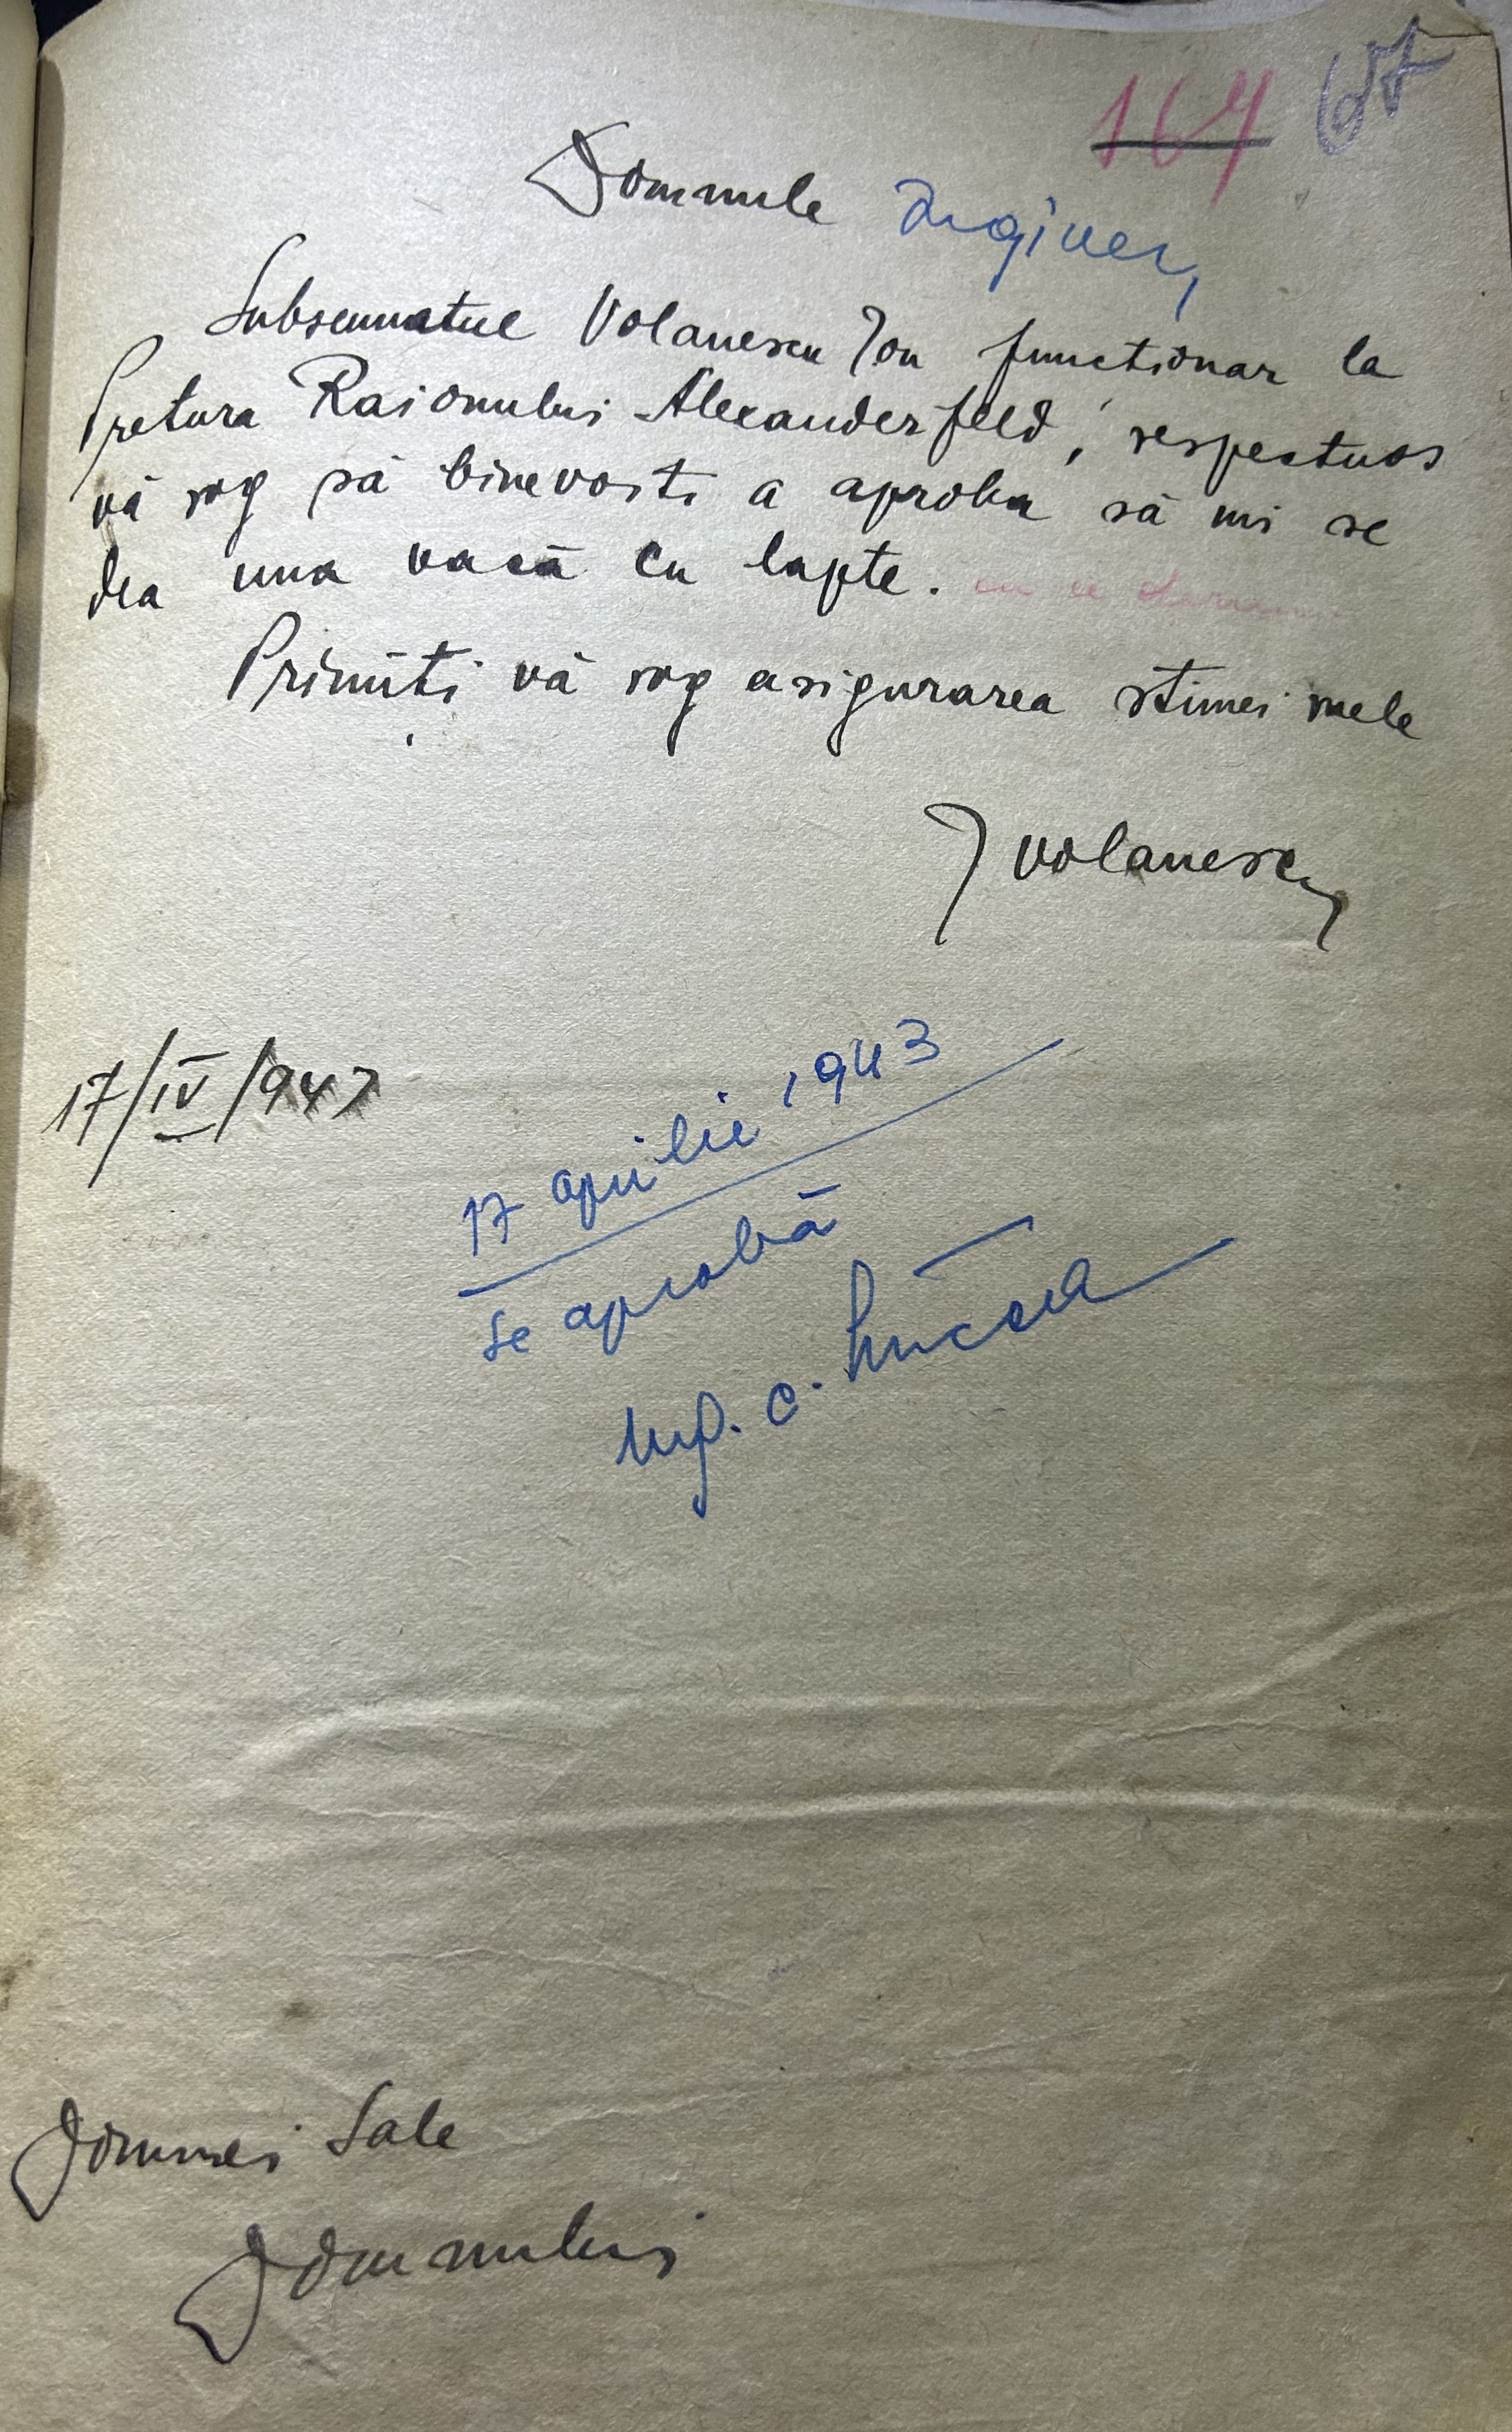 164 67
Domnule Inginer,
Subsemnatul Volanescu Ion functionar la
Pretura Raionului Alexanderfeld, respectuos
vă rog să binevoiti a aproba să mi se
dea una vacă cu lapte.
Primiti vă rog asigurarea stimei mele
I Volanescu
17/IV/943
17 aprilie 1943
se aprobă
Ing. C.
Domniei Sale
Domnului